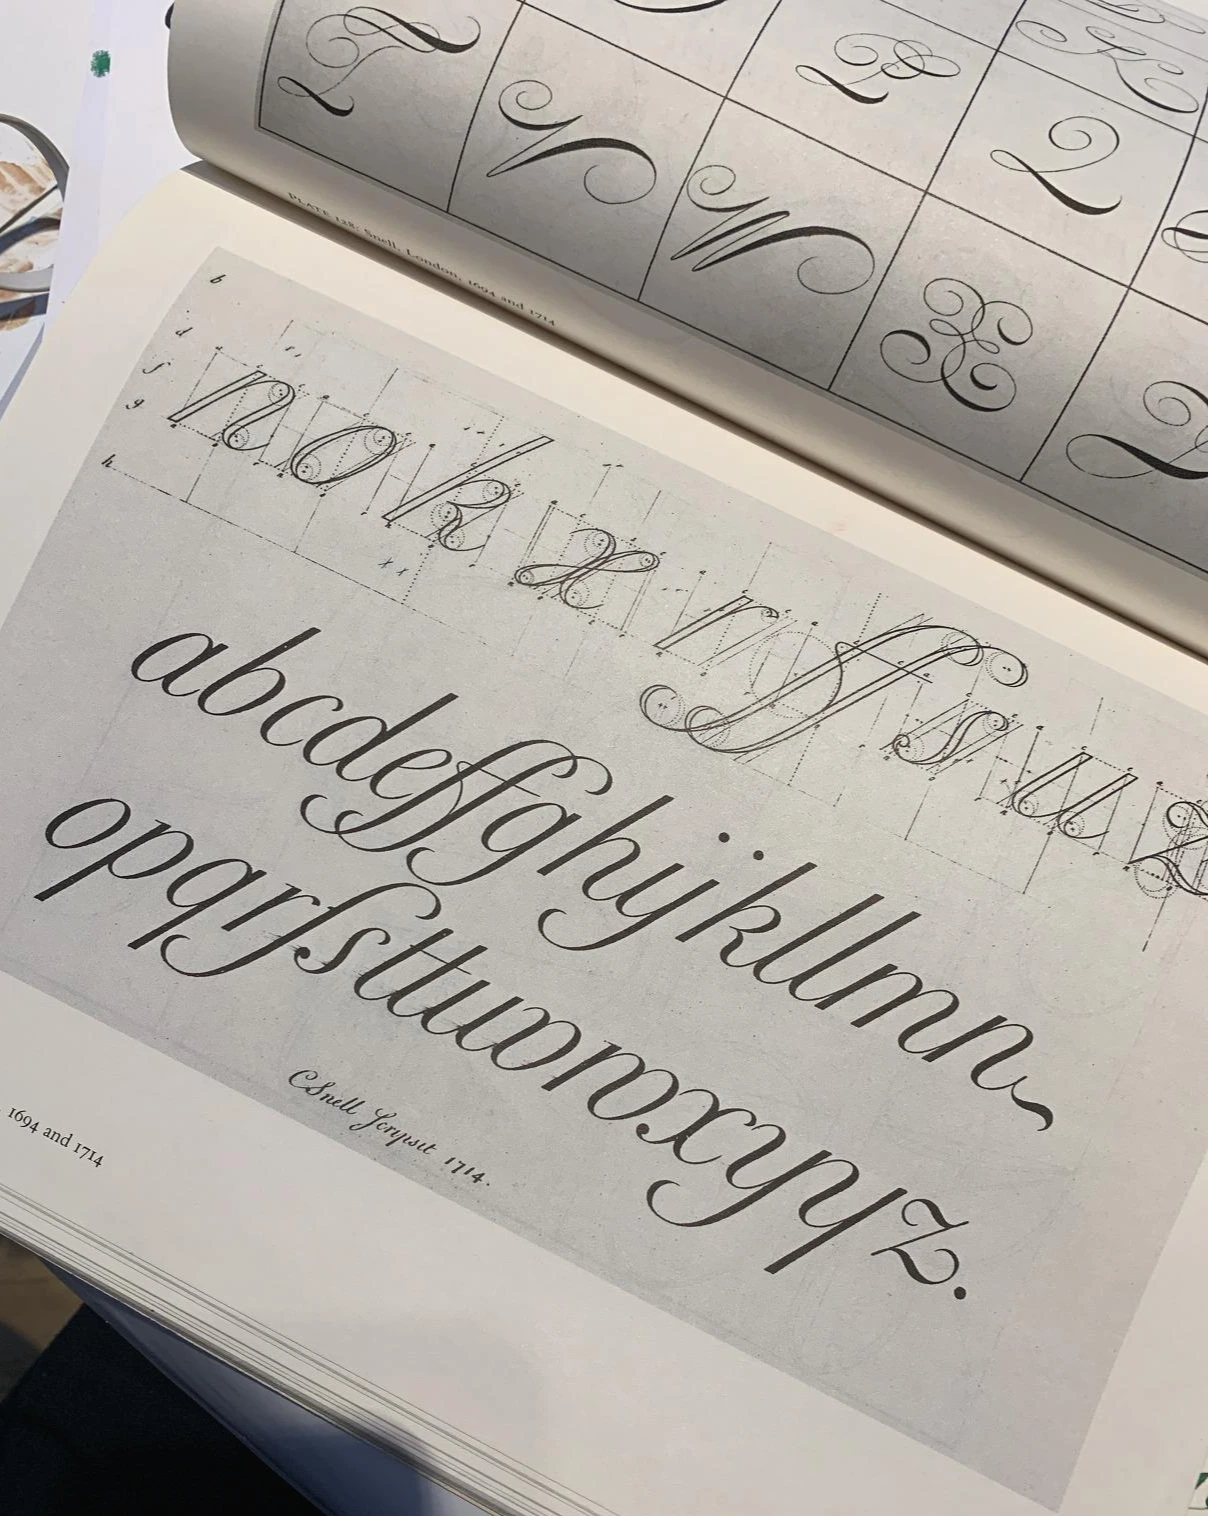 T W W X
P Q K
PLATE 128: Snell. London, 1694 and 1714
b
d
f
g
h
n o k x r ff s u z
abcdeffghijkllmn
opqrſsttuvwxyyz.
CSnell Scripsit 1714.
1694 and 1714